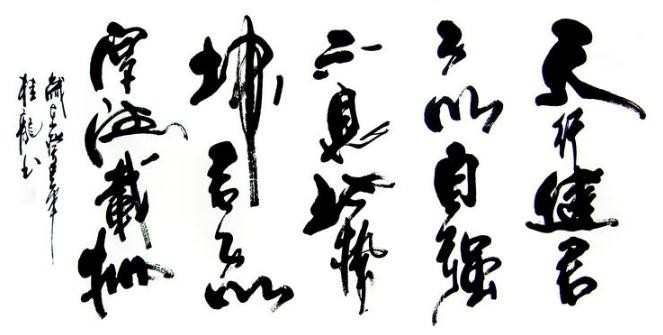 天行健君
子以自強
不息地势
坤君子以
厚德載物